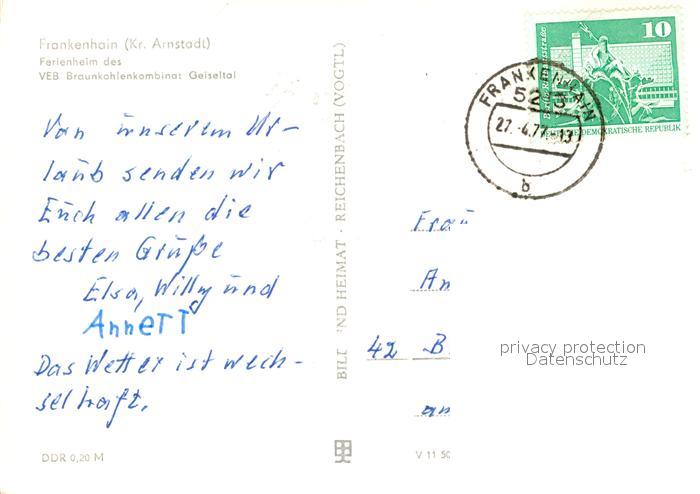 Frankenhain (Kr. Arnstadt)
Ferienheim des
VEB Braunkohlenkombinat Geiseltal
Von unserem Ur-
laub senden wir
Euch allen die
besten Grüße
Elsa, Willy und
Annett
Das Wetter ist wech-
selhaft.
DDR 0,20 M
BILD ND HEIMAT · REICHENBACH (VOGTL)
10
DEMOKRATISCHE REPUBLIK
FRANKENHAIN
5213
27.-4.77-13
b
Frau
An
42 B.
an
V 11 50
privacy protection
Datenschutz